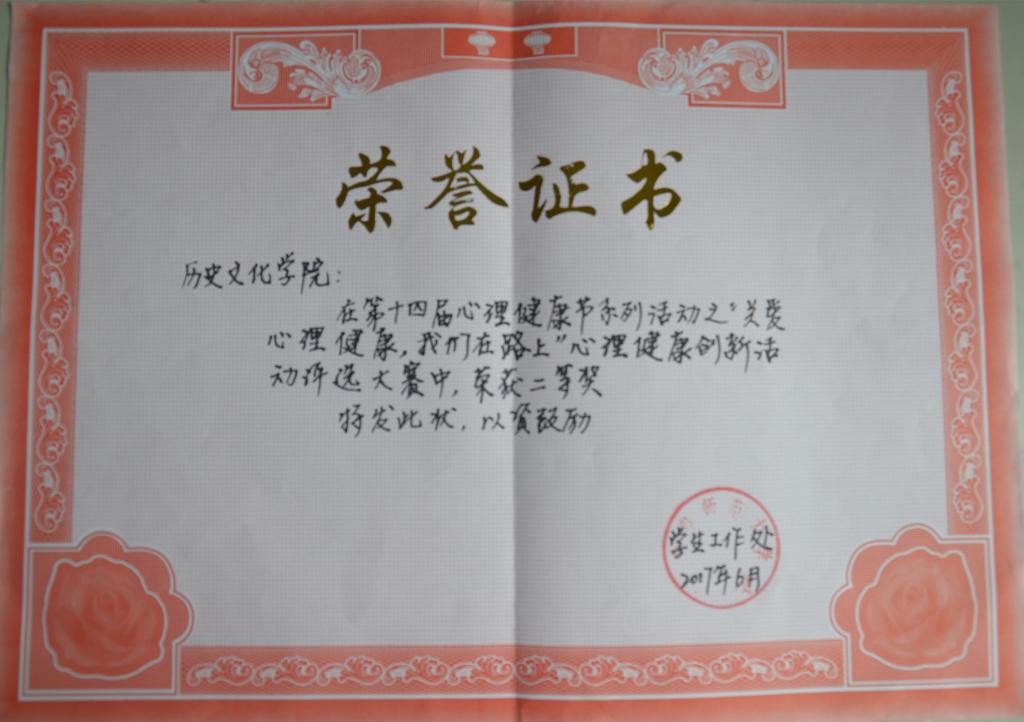 荣誉证书
历史文化学院:
在第十四届心理健康节系列活动之"关爱
心理健康,我们在路上"心理健康创新活
动评选大赛中,荣获二等奖
特发此状,以资鼓励
学生工作处
2017年6月